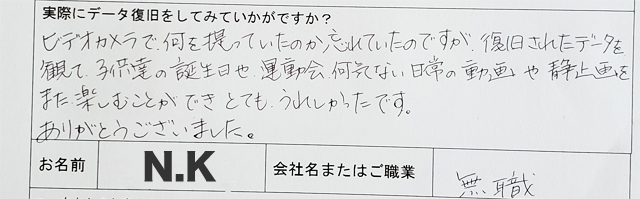 実際にデータ復旧をしてみていかがですか？
ビデオカメラで、何を撮っていたのか忘れていたのですが、復旧されたデータを
観て、子供達の誕生日や、運動会、何気ない日常の動画や静止画を
また楽しむことができとても、うれしかったです。
ありがとうございました。
お名前 N.K 会社名またはご職業 無職